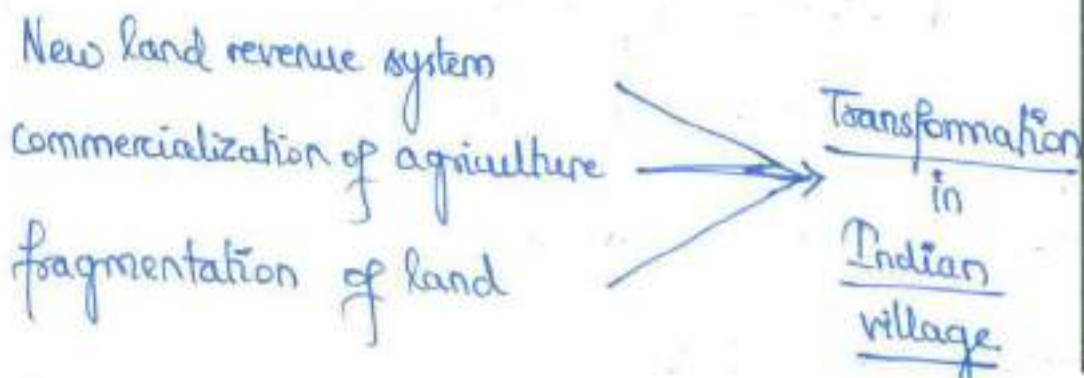 New land revenue system
commercialization of agriculture
fragmentation of land
Transformation
in
Indian
village